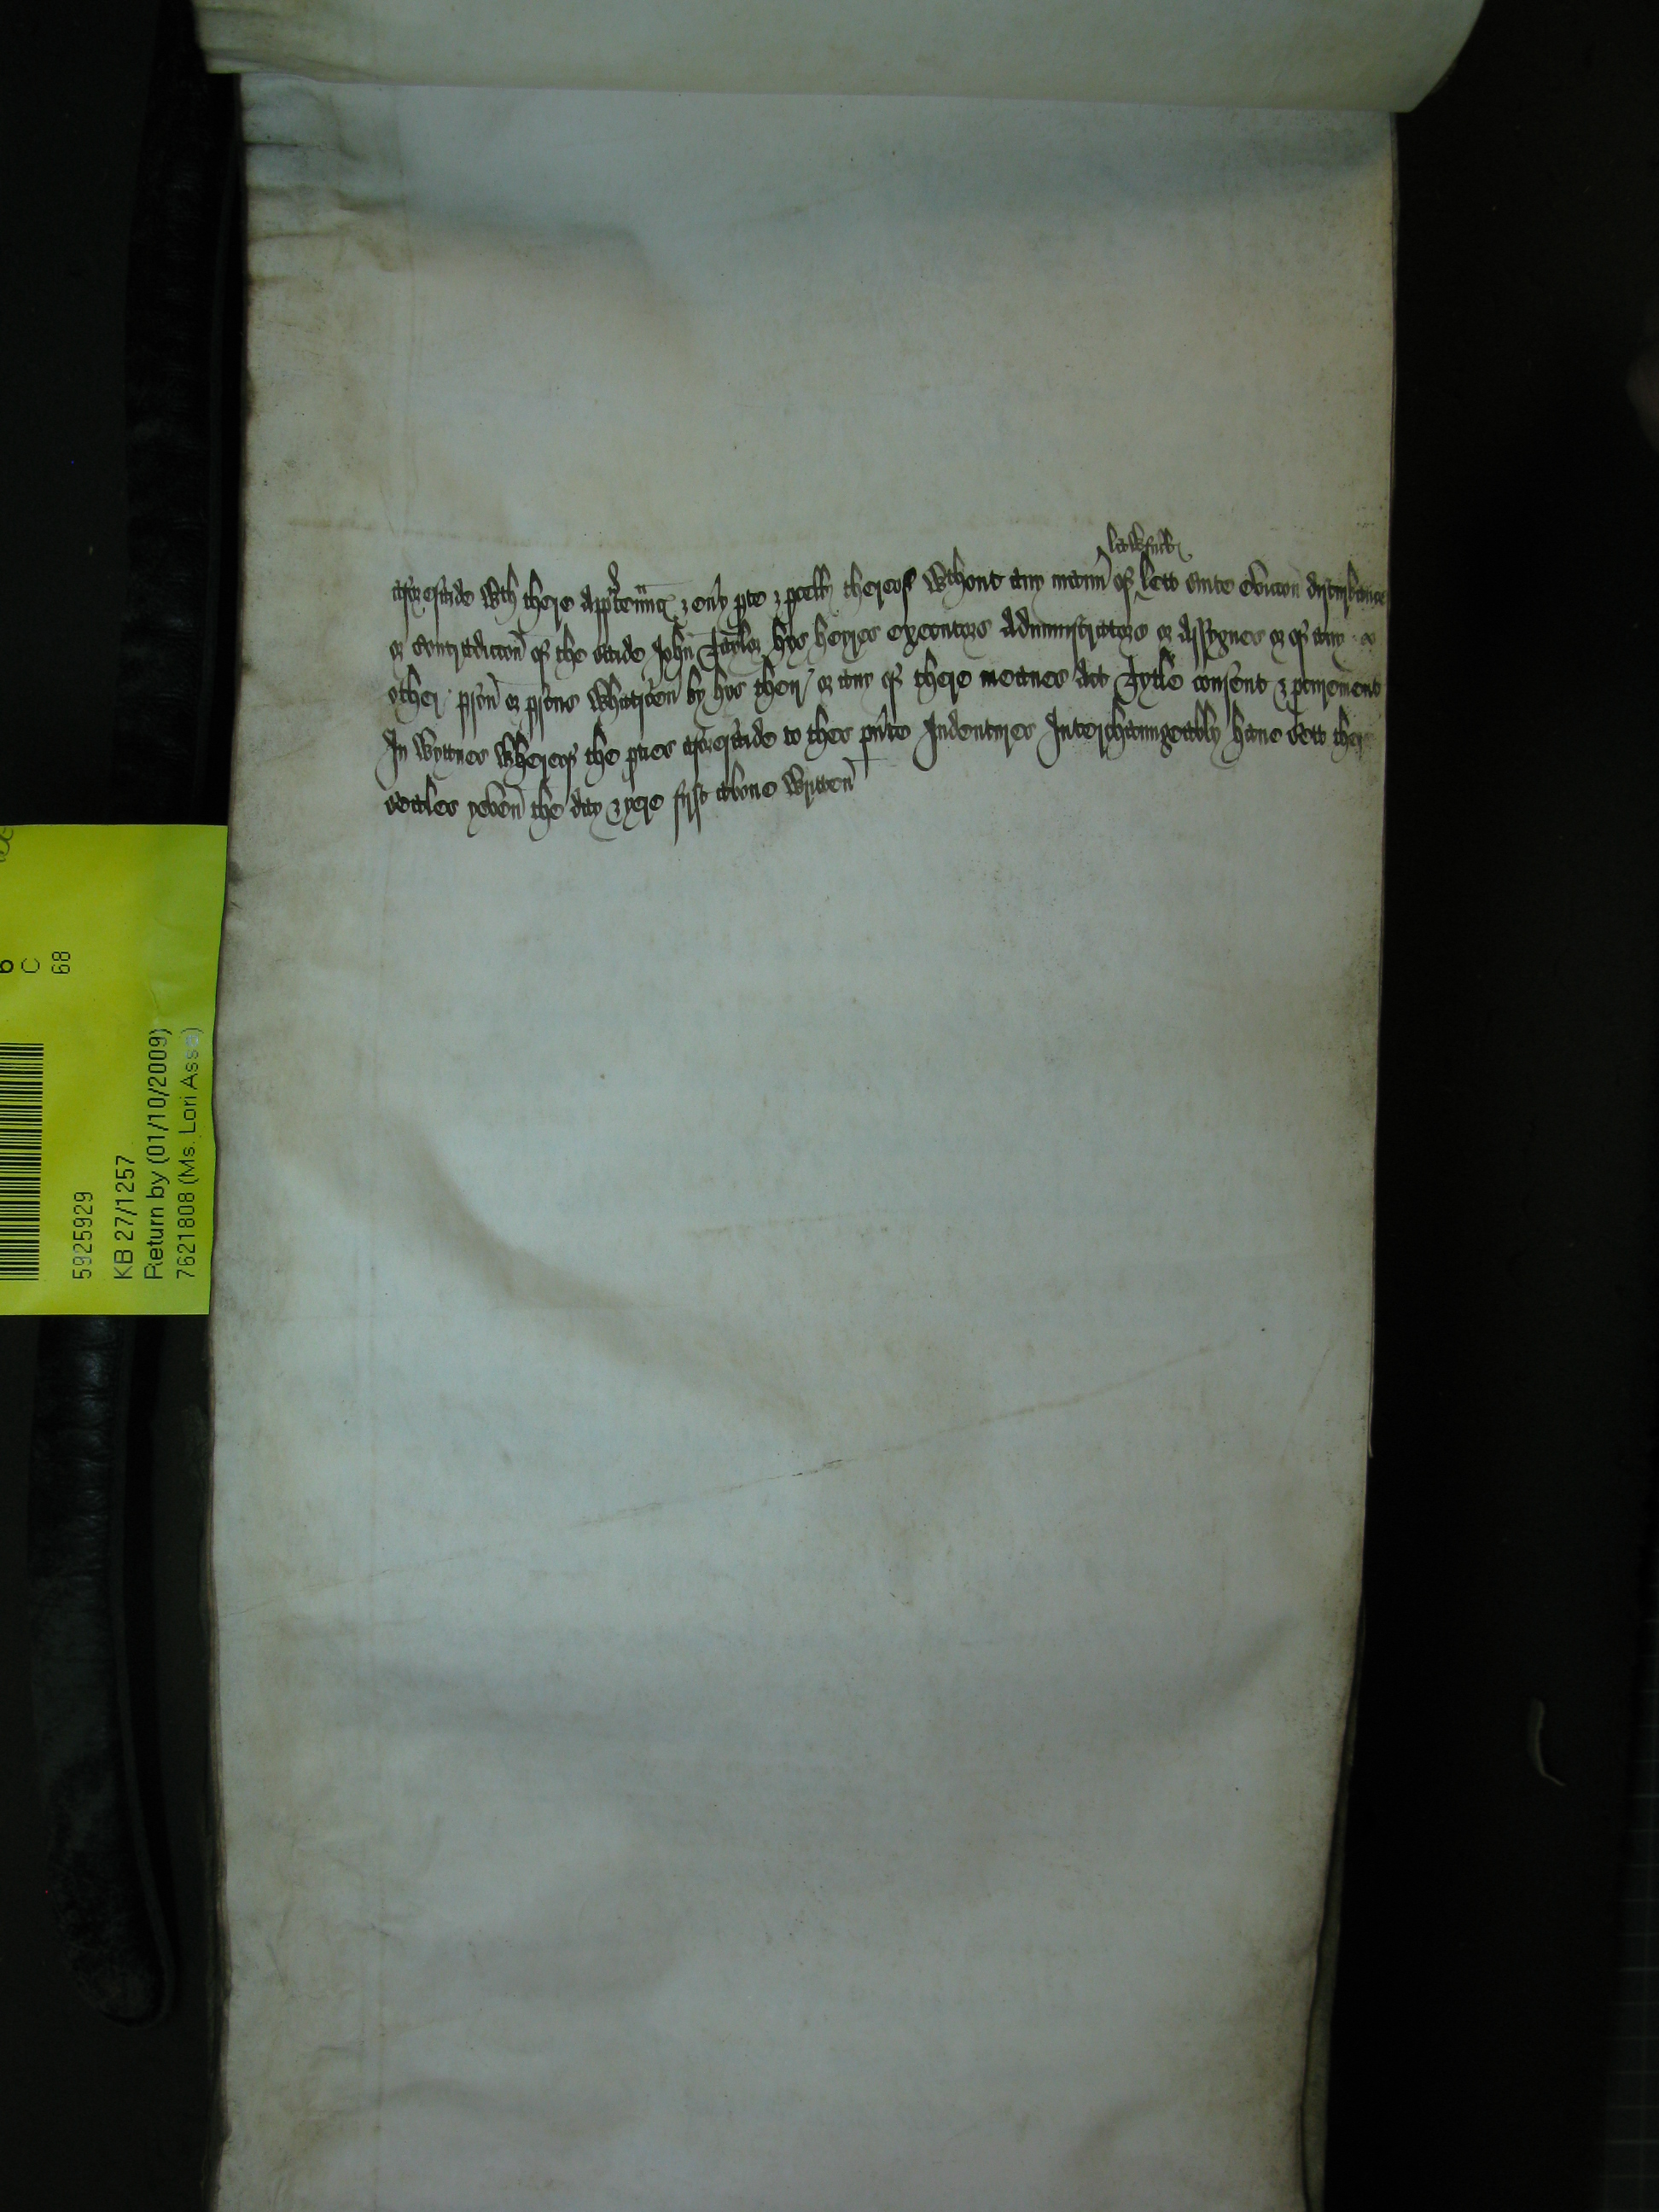 lawfull
aforesaide wth there appʳtenn̄c̄ & eny pte & pcell thereof wthout any mann̄ of lett sute eviccon disturbance
or contradiccon̄ of the saide John Tayler hys heyres executors Administrators or Assygnes or of any
other pson̄ or psons whatsoen̄ by hys theyr or any of there meanes Act Tytle consent & pcurement
In wytnes whereof the pties aforesaide to thes pn̄te Indentures Interchaungeably haue sett ther
seales yeven̄ the day & yere fyrst aboue wrytten̄
6
C
68
5925929
KB 27/1257
Return by (01/10/2009)
7621808 (Ms. Lori Assa)